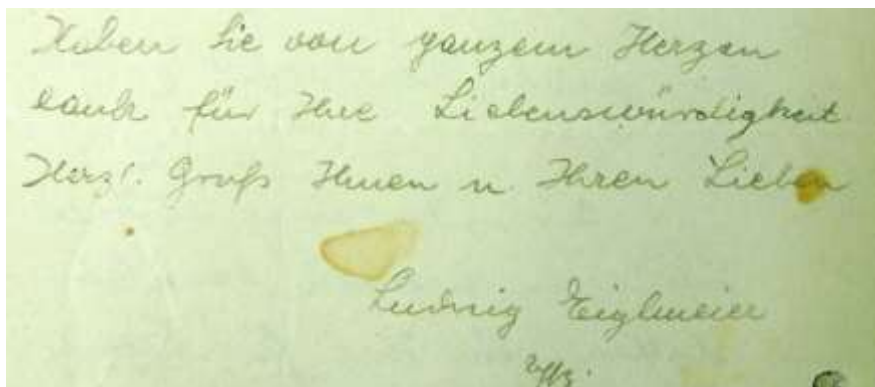 Haben Sie von ganzem Herzen
dank für Ihre Liebenswürdigkeit.
Herzl. Gruß Ihnen u. Ihren Lieben
Ludwig Eiglmeier
Uffz.